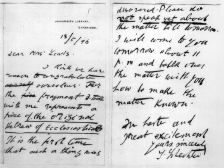 UNIVERSITY LIBRARY,
CAMBRIDGE.
13/5/96
Dear Mrs Lewis
I think we have
reason to congratulate
ourselves. For the
first fragment I
with me represents a
piece of the original
Hebrew of Ecclesiasticus.
It is the first time
that such a thing was
discovered. Please do
not speak yet about
the matter till tomorrow.
I will come to you
tomorrow about 11
p.m and talk over
the matter with you
how to make the
matter known.
In haste and
great excitement
yours sincerely
S Schechter